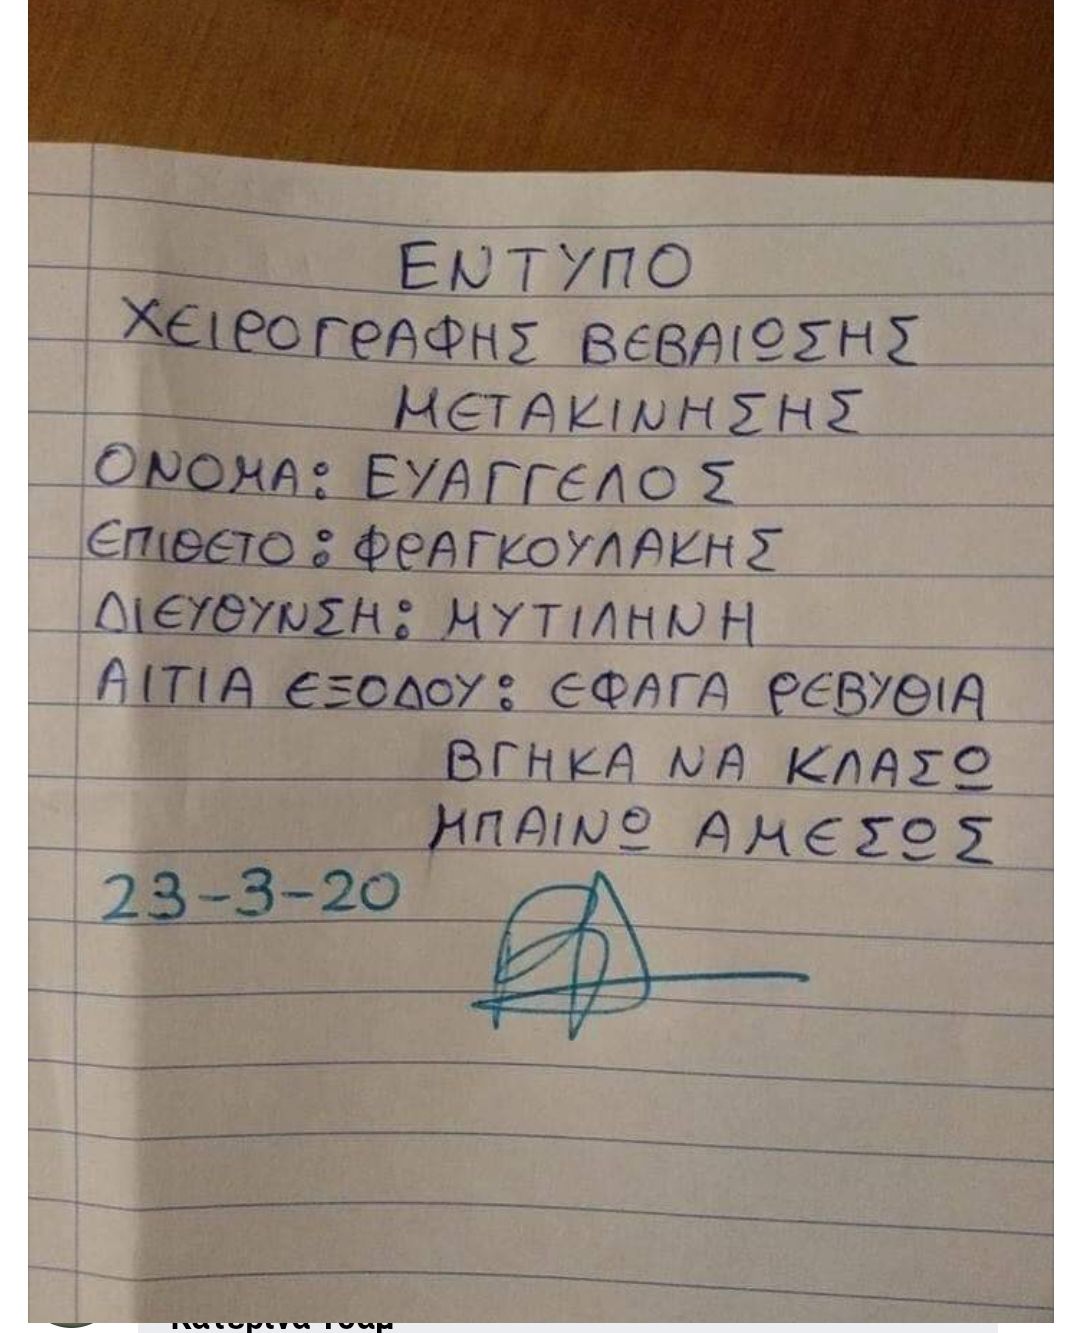 ΕΝΤΥΠΟ
ΧΕΙΡΟΓΡΑΦΗΣ ΒΕΒΑΙΩΣΗΣ
ΜΕΤΑΚΙΝΗΣΗΣ
ΟΝΟΜΑ: ΕΥΑΓΓΕΛΟΣ
ΕΠΙΘΕΤΟ: ΦΡΑΓΚΟΥΛΑΚΗΣ
ΔΙΕΥΘΥΝΣΗ: ΜΥΤΙΛΗΝΗ
ΑΙΤΙΑ ΕΞΟΔΟΥ: ΕΦΑΓΑ ΡΕΒΥΘΙΑ
ΒΓΗΚΑ ΝΑ ΚΛΑΣΩ
ΜΠΑΙΝΩ ΑΜΕΣΩΣ
23-3-20